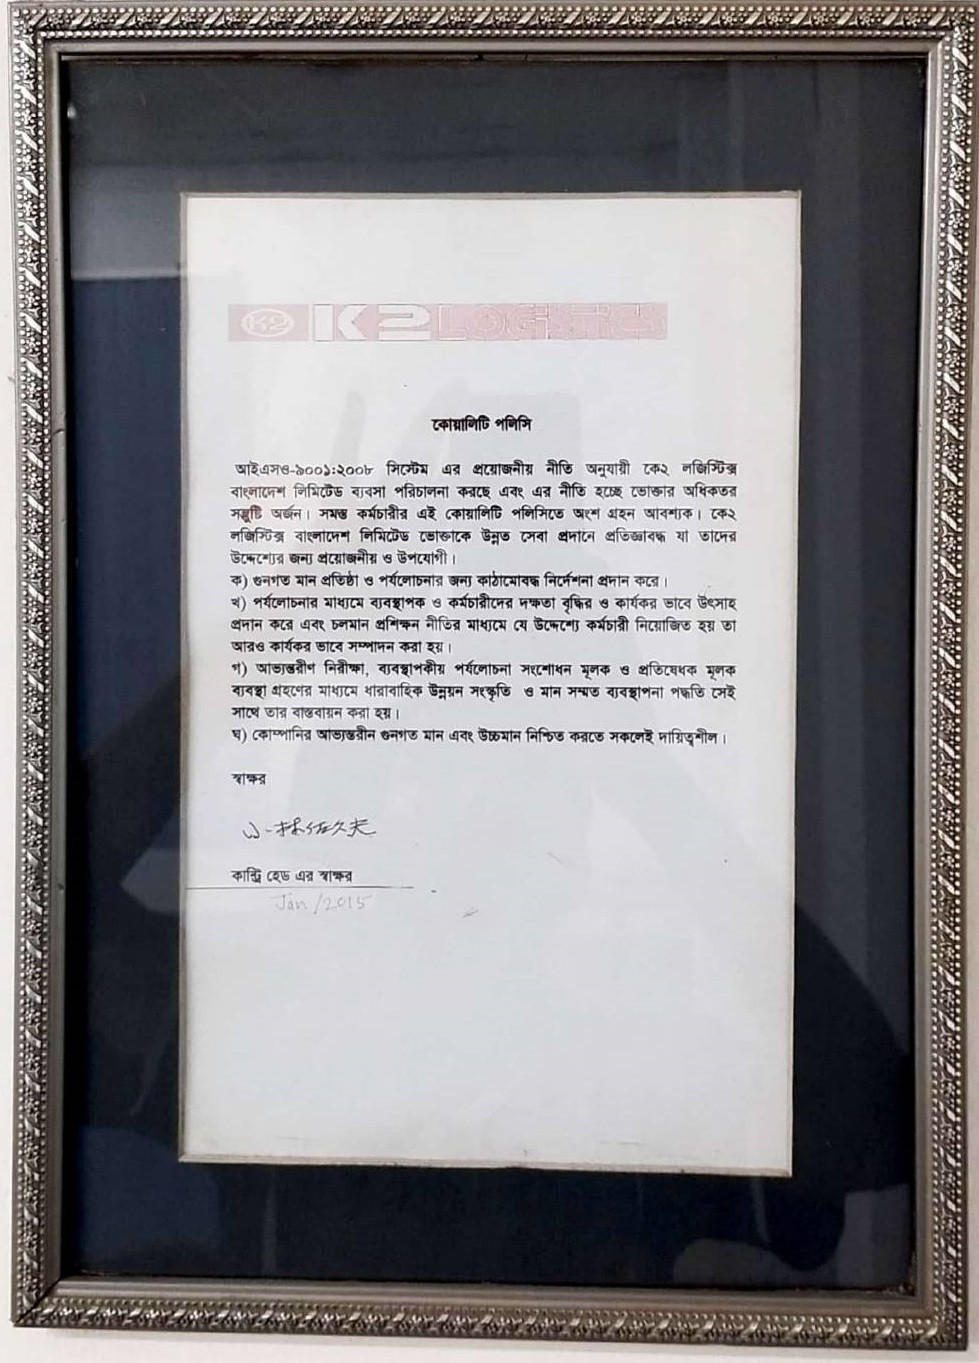 K2 K2 LOGISTICS
কোয়ালিটি পলিসি
আইএসও-৯০০১:২০০৮ সিস্টেম এর প্রয়োজনীয় নীতি অনুযায়ী কে২ লজিস্টিক্স
বাংলাদেশ লিমিটেড ব্যবসা পরিচালনা করছে এবং এর নীতি হচ্ছে ভোক্তার অধিকতর
সন্তুটি অর্জন। সমস্ত কর্মচারীর এই কোয়ালিটি পলিসিতে অংশ গ্রহন আবশ্যক। কে২
লজিস্টিক্স বাংলাদেশ লিমিটেড ভোক্তাকে উন্নত সেবা প্রদানে প্রতিজ্ঞাবদ্ধ যা তাদের
উদ্দেশ্যের জন্য প্রয়োজনীয় ও উপযোগী।
ক) গুনগত মান প্রতিষ্ঠা ও পর্যলোচনার জন্য কাঠামোবদ্ধ নির্দেশনা প্রদান করে।
খ) পর্যলোচনার মাধ্যমে ব্যবস্থাপক ও কর্মচারীদের দক্ষতা বৃদ্ধির ও কার্যকর ভাবে উৎসাহ
প্রদান করে এবং চলমান প্রশিক্ষন নীতির মাধ্যমে যে উদ্দেশ্যে কর্মচারী নিয়োজিত হয় তা
আরও কার্যকর ভাবে সম্পাদন করা হয়।
গ) আভ্যন্তরীণ নিরীক্ষা, ব্যবস্থাপকীয় পর্যলোচনা সংশোধন মূলক ও প্রতিষেধক মূলক
ব্যবস্থা গ্রহণের মাধ্যমে ধারাবাহিক উন্নয়ন সংস্কৃতি ও মান সম্মত ব্যবস্থাপনা পদ্ধতি সেই
সাথে তার বাস্তবায়ন করা হয়।
ঘ) কোম্পানির আভ্যন্তরীন গুনগত মান এবং উচ্চমান নিশ্চিত করতে সকলেই দায়িত্বশীল।
স্বাক্ষর
কান্ট্রি হেড এর স্বাক্ষর
Jan/2015